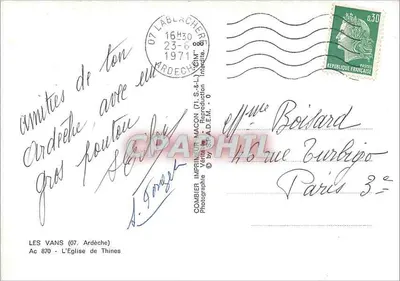 07 LABLACHERE
16H30
23-6
1971
ARDECHE
0,30
REPUBLIQUE FRANÇAISE
Amitiés de ton
Ardèche avec un
gros poutou
Mme Boisard
48 rue Turbigo
Paris 3e
CPARHTL
COMBIER IMPRIMEUR MACON (71. S.-&-L.) "CIM"
Reproduction Interdite.
LES VANS (07. Ardèche)
Ac 870 - L'Eglise de Thines